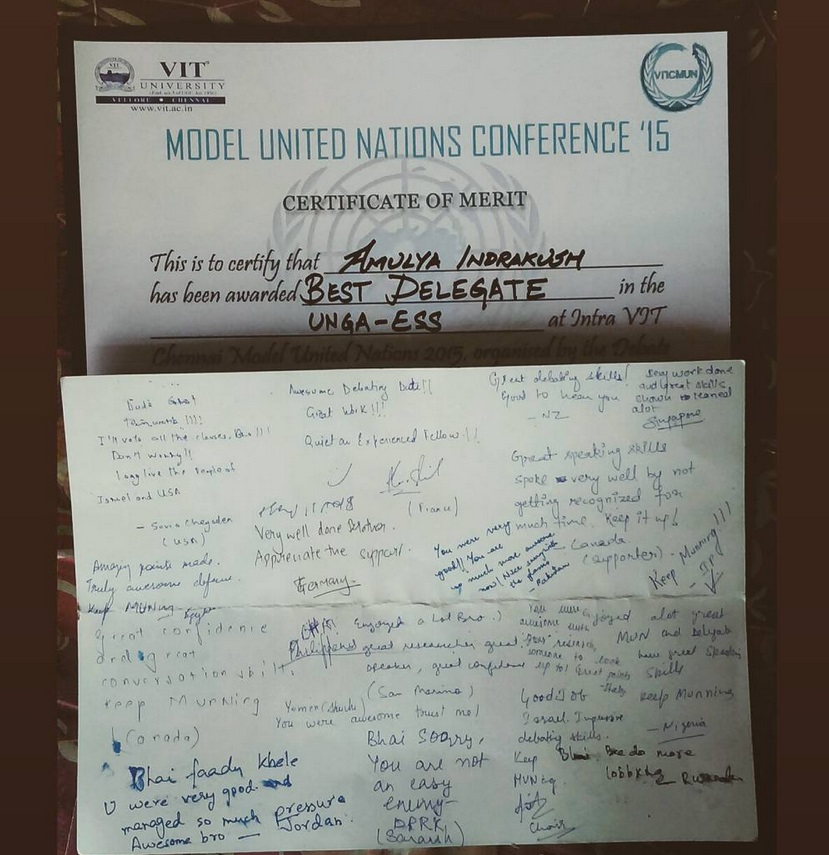 VIT
UNIVERSITY
VELLORE • CHENNAI
www.vit.ac.in
VITCMUN
MODEL UNITED NATIONS CONFERENCE '15
CERTIFICATE OF MERIT
This is to certify that AMULYA INDRAKUSH
has been awarded BEST DELEGATE in the
UNGA-ESS at Intra VIT
Chennai Model United Nations 2015, organised by the Debate
I'll vote all the clauses, Bro!!!
Don't worry!!
Long live the people of
Israel and USA
(USA)
Awesome Debating Dude!!
Great Work!!!
Quiet an Experienced Fellow!!
(France)
Great debating skills!
Good to hear you
- NZ
Sexy work done
and great skills
shown learned
alot
Singapore
Great speaking skills
Spoke very well by not
getting recognized for
much time. Keep it up!
- Canada
(supporter)
Keep Munning!!!
Very well done
Appreciate the support.
Germany.
You were very
good!! You are
so much more awesome
now! Nice
- Pakistan
Amazing points made.
Truly awesome defence.
Keep MUNing - Egypt
Great confidence
and great
conversation skills,
Keep Munning
(Canada)
Enjoyed a Lot Bro :)
great researcher great
speaker, great confidence
(San Marino)
You were
awesome
research,
someone to look
up to! Great points
enjoyed alot great
MUN and Delegate
have great Speaking
Skills
keep Munning
- Nigeria
Yemen
You were awesome trust me!
Good Job
Israel. Impressive
debating skills.
Keep
MUNing.
Chair
Bhai Soorry,
You are not
an easy
enemy-
DPRK
(Saransh)
do more
lobbying
Bhai faady khele
U were very good and
managed so much pressure
Awesome bro — Jordan.